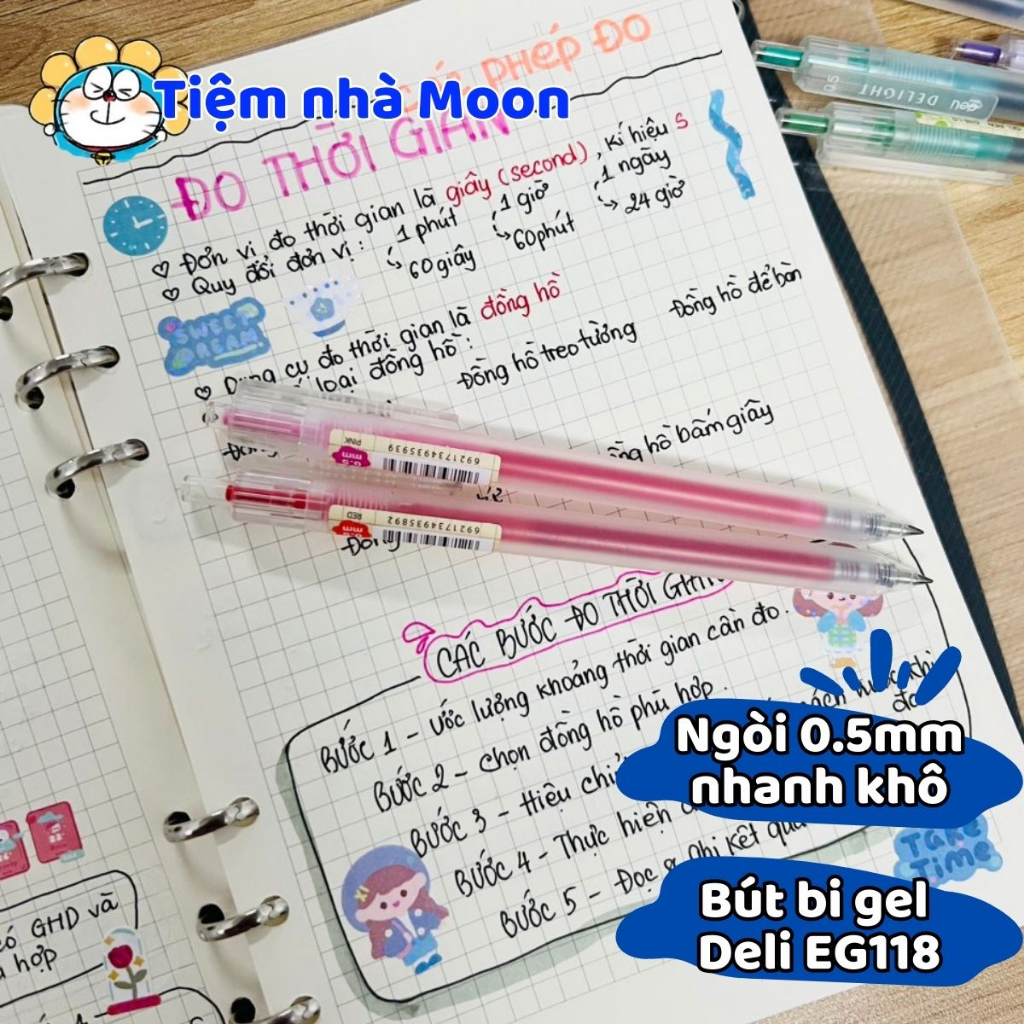 Tiệm nhà Moon
PHÉP ĐO
ĐO THỜI GIAN
♡ Đơn vị đo thời gian là giây (second), kí hiệu s
♡ Quy đổi đơn vị: 1 phút 1 giờ 1 ngày
↳ 60 giây ↳ 60 phút ↳ 24 giờ
SWEET
DREAM
♡ Dụng cụ đo thời gian là đồng hồ
loại đồng hồ:
Đồng hồ treo tường Đồng hồ để bàn
hồ bấm giây
PINK
0.5
mm
6921734935939
RED
mm
6921734935892
CÁC BƯỚC ĐO THỜI GIAN
BƯỚC 1 - Ước lượng khoảng thời gian cần đo.
BƯỚC 2 - Chọn đồng hồ phù hợp.
BƯỚC 3 - Hiệu chỉ
BƯỚC 4 - Thực hiện
BƯỚC 5 - Đọc & ghi kết quả
Ngòi 0.5mm
nhanh khô
Take
Time
Bút bi gel
Deli EG118
có GHD và
hợp
DELIGHT
0.5